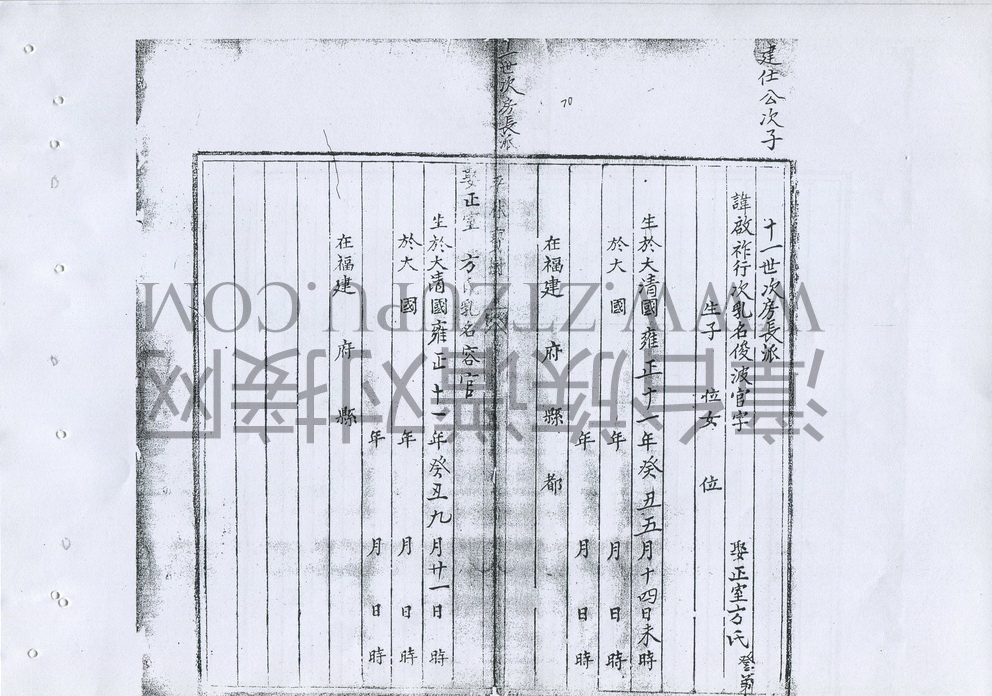 建仕公次子
十一世次房長派
諱啟祚行次乳名俊波官字 娶正室方氏
生子 位女 位
生於大清國雍正十一年癸丑五月十四日未時
於大 國 年 月 日 時
年 月 日 時
在福建 府 縣 都
70
世次房長派
娶正室 方氏乳名容官
生於大清國雍正十一年癸丑九月廿一日 時
於大 國 年 月 日 時
年 月 日 時
在福建 府 縣
WWW.ZTZUPU.COM
漳台族谱对接网